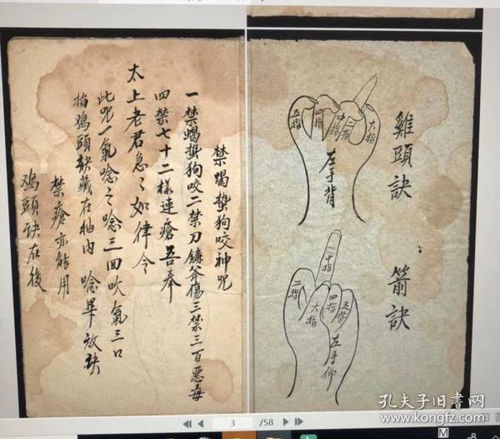 雞頭訣
大指
二指
中指
四指
五指
左手背
箭訣
中指
五指
四指
大指
二指
左手仰
禁蝎蜇狗咬神咒
一禁蝎蜇狗咬二禁刀鐮斧傷三禁三百惡毒
四禁七十二樣連瘡吾奉
太上老君急々如律令
此咒一氣唸之唸三回吹氣三口
掐鸡頭訣藏在袖內 唸畢放訣
禁瘡亦能用
鸡頭訣在後
3 /58
孔夫子旧书网
www.kongfz.com